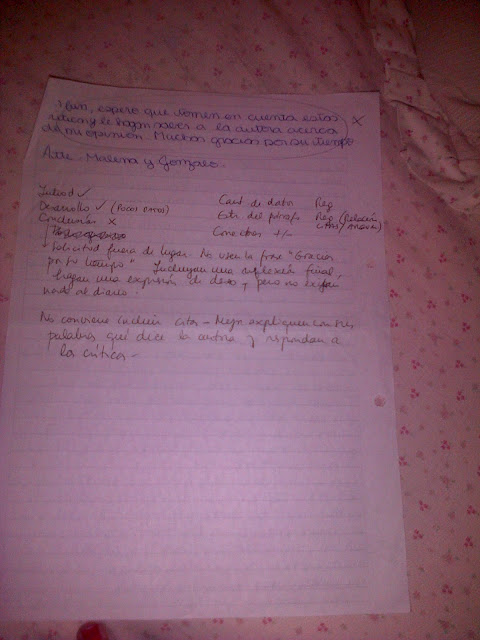 bien, espero que tomen en cuenta estas
criticas y le hagan saber a la autora acerca X
de mi opinión. Muchas gracias por su tiempo
Atte. Malena y Gonzalo.
Introd ✓ Cant de datos Reg
Desarrollo ✓ (Pocos) Estr. del párrafo Reg (Relación
Conclusión X Conectores +/-
Solicitud fuera de lugar. No usen la frase "Gracias
por su tiempo" Incluyan una reflexión final,
hagan una expresión de deseo, pero no exijan
nada al diario.
No conviene incluir citas - Mejor expliquen con sus
palabras qué dice la autora y respondan a
las críticas -